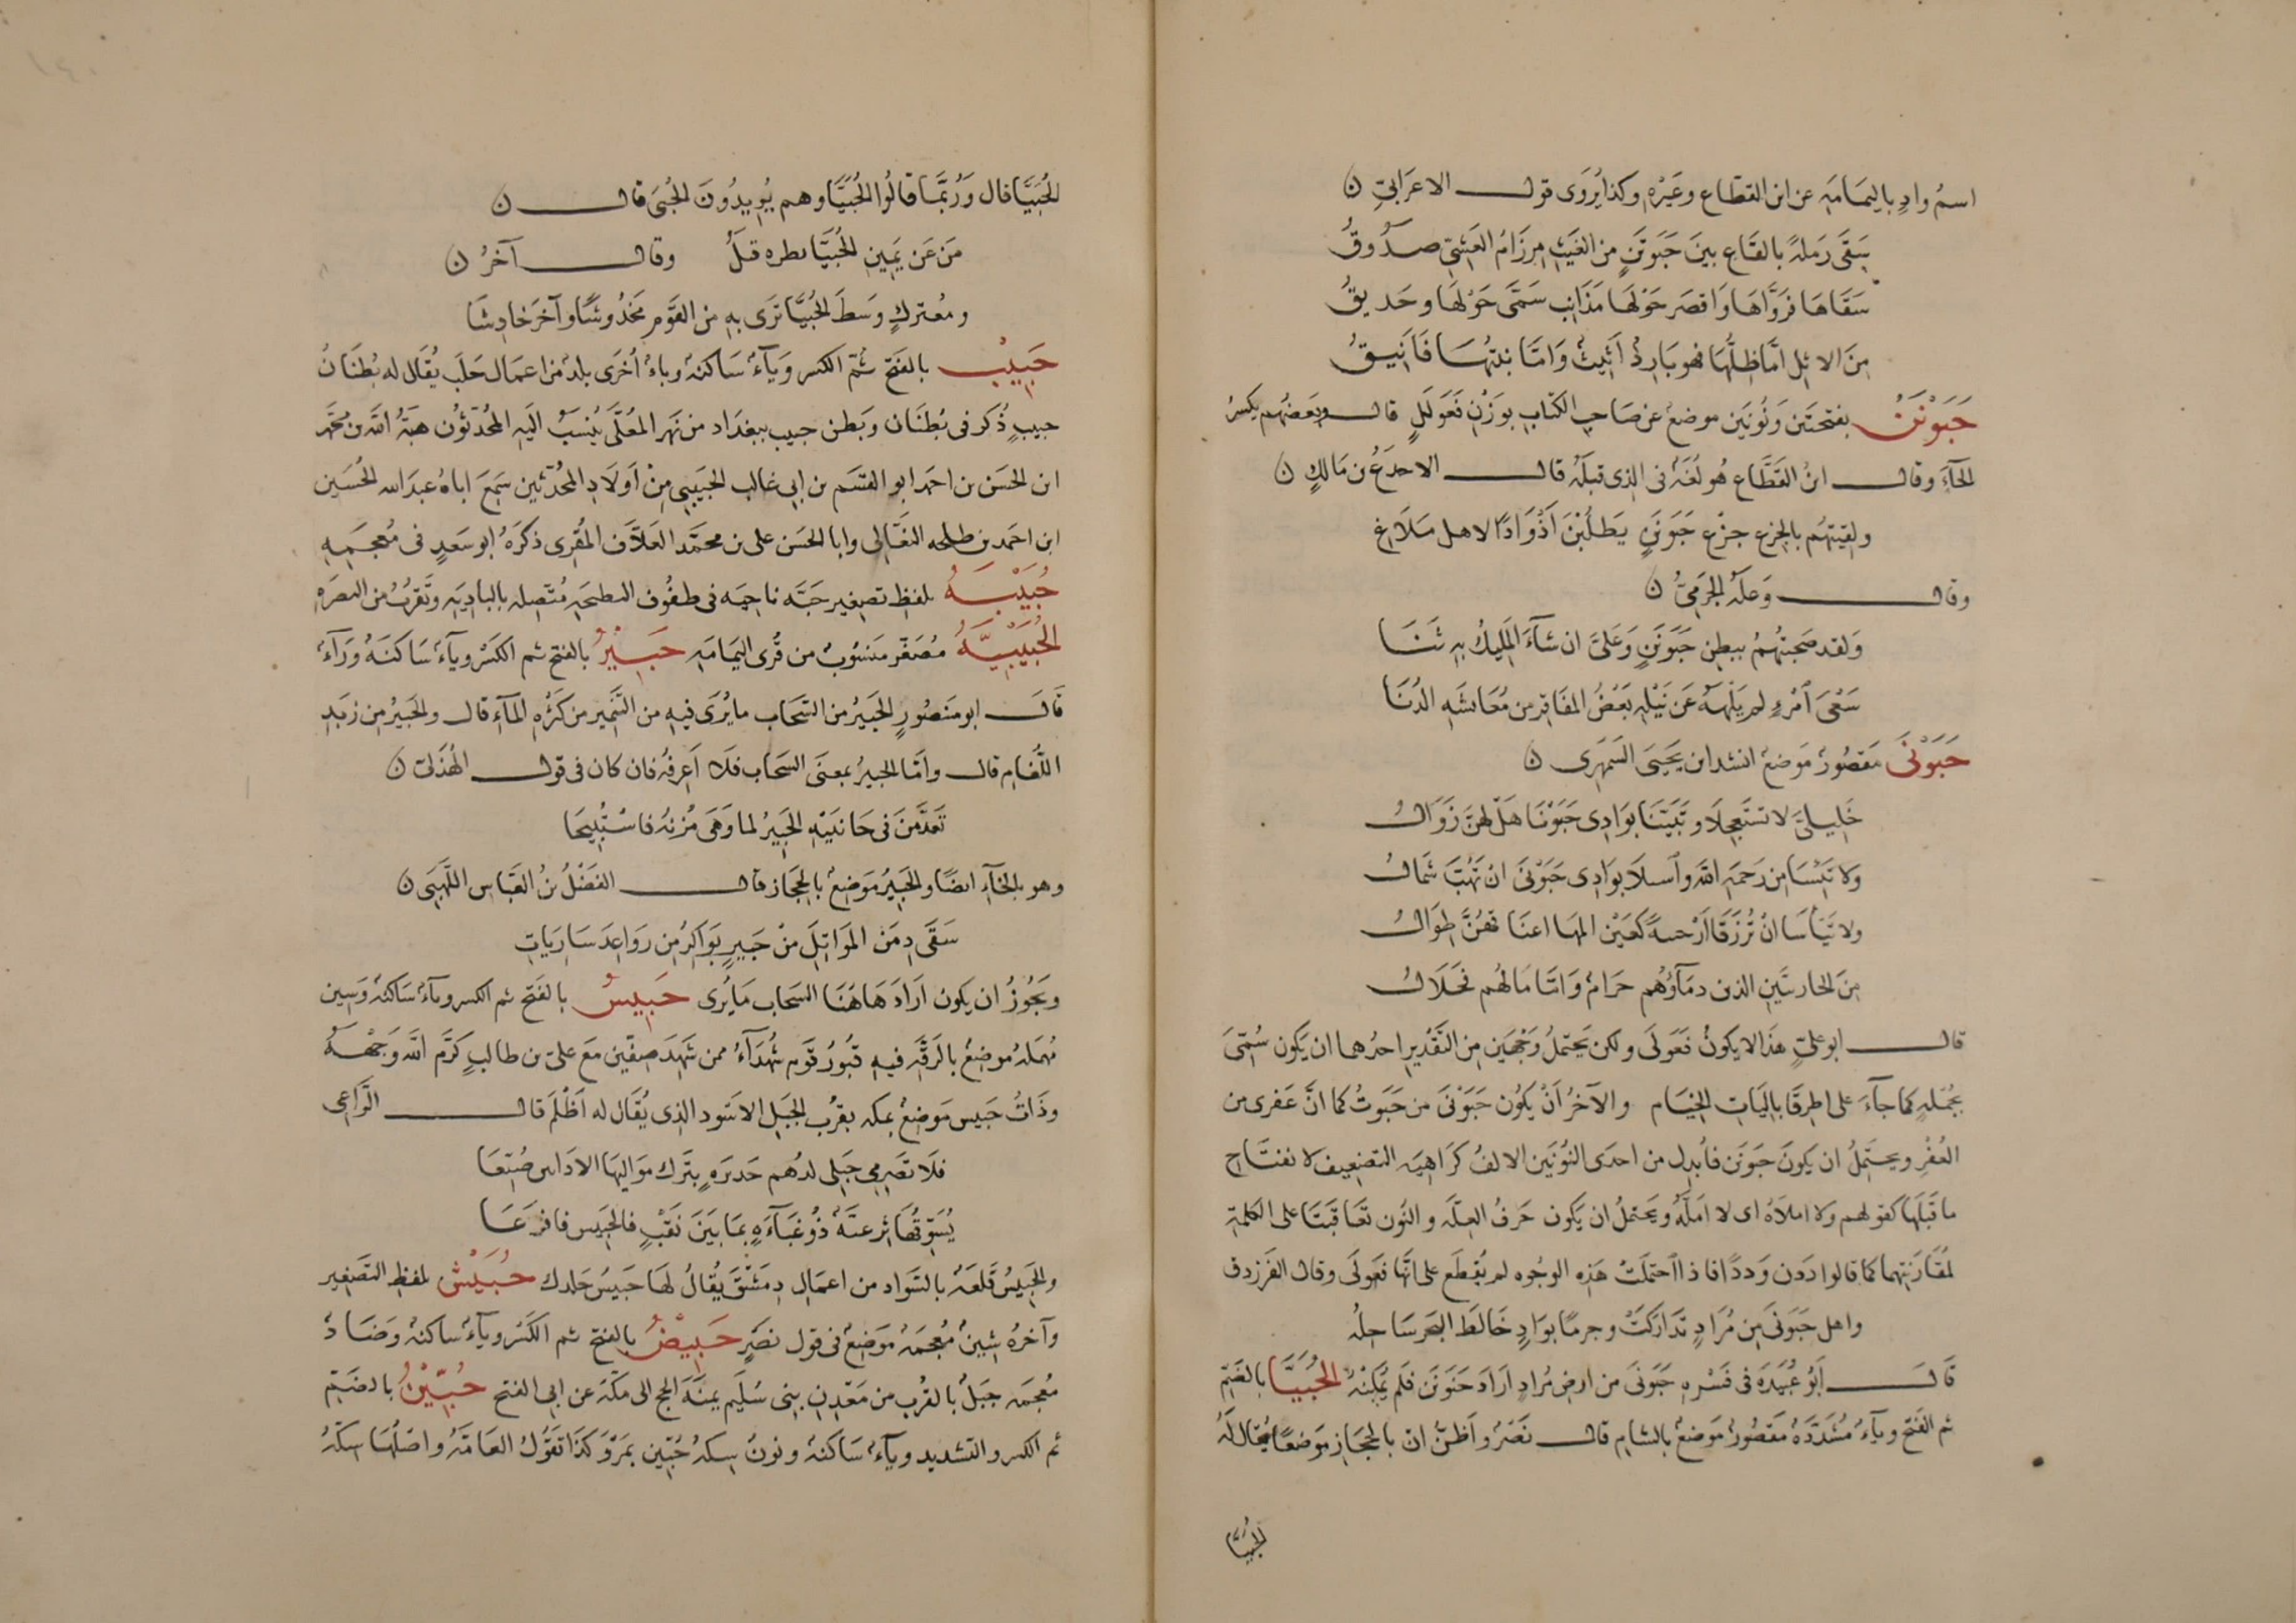 اسمُ وادٍ باليمَامَةِ عن ابن القطّاع وغيْرِه وكذا يُروَى قول الاعرَابيّ ن
سَقَى رَملةً بالقَاعِ بينَ حَبَوتَنٍ من الغَيْثِ مِرزَامُ العَشِيّ صَدُوقُ
سَقَاهَا فرَوَّاهَا وَاقصَر حَوْلهَا مَذَانِب سَمّى حَوْلهَا وحَديقُ
مِنَ الاثلِ امَّا ظِلُّهَا فهو بَارِدٌ اَثِيثٌ وَامّا نبتهَا فَاَنيقُ
حَبَوْنَن بفتحتَين ونُونَين موضعٌ عن صَاحِبِ الكتابِ بوَزْنِ فَعَولَلٍ قال وبَعضُهم يكسرُ
الحآءَ وقال ابنُ القَطَّاع هُو لُغَةٌ فى الذى قبلَهُ قال الاجدَعُ بن مَالكٍ ن
ولقيتهُم بالجزع جزْعِ حَبَونَنٍ يَطلُبْنَ اَذْوَادًا لاهل مَلَاعِ
وقال وَعلَةُ الجَرْمِيُّ ن
وَلقد صَبحتُهمُ ببطنِ حَبَونَنٍ وَعَلىَّ ان شآءَ المَلِيكُ بهِ ثَنَا
سَعْىَ اَمْرِءٍ لم يَلْهَهُ عَن نَيْلِهِ بَعْضُ المفَاقِر من مُعَايشَةِ الدُّنَا
حَبَوْنَى مَقصُورٌ مَوضعٌ انشد ابن يَحيَى السَّمهَرى ن
خَليلىَّ لا تستَعجِلَا وتَبَيّنَا بوَادِى حَبَوْنَا هَلْ لهُنَّ زَوَالُ
ولا تَيْئَسَا مِن رَحمَةِ اللّه وَاَسئلَا بوَادِى حَبَوْنَى انْ تَهُبَّ شَمَالُ
ولا تَيْأسَا انْ تُرزَقَا اَرْحبيةً كعَيْن المهَا اعنَاقهُنَّ طوَالُ
مِنَ الحارثيَّينِ الذين دمَآؤُهُم حَرامٌ وَامّا مَالهُم فحَلَالُ
قال ابو عليّ هذَا لا يكونُ فَعَولَى ولكن يَحتملُ وَجْهَين مِن التَّقْدِيرِ احدُهما ان يَكون سُمّىَ
بجُملةٍ كما جآءَ على اطرِقَا بالِيَاتِ الخيَامِ والآخرُ اَنْ يكُون حَبَوْنَى من حَبَوتُ كما انَّ عَفرنى من
العُفْرِ ويحتَمِلُ ان يكونَ حَبَونَن فأبدِل من احدَى النُّونَين الالفُ كرَاهيَة التضعيف لانفتاحِ
ما قَبلَهَا كقولهم ولا املاهُ اى لا امَلّهُ ويَحتملُ ان يكون حَرفُ العلّة والنُّون تعَاقَبتَا على الكلمَةِ
لمُقَارَبتِهما كما قالوا دَدَن ودَدًا فاذا احتمَلَتْ هَذِه الوجُوه لم يُقطَع على انَّها فَعَولَى وقال الفَرزدق
واهل حَبَونَى مِن مُرَادٍ تَدَارَكَتْ وجرمًا بوَادٍ خَالطَ البَحرَ سَاحِلُهْ
قَالَ اَبُو عُبَيدَةَ فى فَسْرِهِ حَبَونَى من ارضِ مُرادٍ ارَادَ حَبَونَن فلَم يُمكِنْهُ الحُبَيَّا بالضّم
ثم الفَتْحِ ويآءٌ مُشَدَّدَةٌ مَقصُورٌ مَوضعٌ بالشام قال نَصْرٌ واَظُنُّ انّ بالحجَازِ مَوضعًا يُقالُ لَهُ
الحُبَيَّا
الحُبَيَّا قال ورُبَّمَا قالُوا الحُبَيَّا وهم يُريدُونَ الحُبَى قال ن
مَن عَن يَمِينِ الحُبَيَّا نظرة قَبَلُ وقال آخرُ ن
ومُعتركٍ وَسطَ الحُبَيَّا تَرَى بهِ من القَوْمِ مَخْدُوشًا وآخرَ خادِشَا
حَبِيبٌ بالفَتح ثُمّ الكسر ويَآءٌ سَاكنةٌ وباءٌ اُخرَى بلدٌ من اعمَال حَلَب يُقَال له بُطنَانُ
حبيبٍ ذُكر فى بُطنَان وبَطن حبيب ببغدَاد من نَهَر المُعَلَّى يُنسَبُ الَيهِ المحُدّثوْن هبَةُ اللّه بن محَمَّد
ابن الحَسَن بن احمَد ابو القسَم بن ابى غالب الحَبيبِى مِنْ اَولَادِ المُحدّثين سَمِعَ اباهُ عبدَالله الحُسَين
ابن احمَد بن طلحه النعَالِى وابا الحَسَن على بن محمَّد العَلّاف المُقرِى ذكرَهُ ابو سَعدٍ فى مُعجَمِهِ
حُبَيْبَةُ بلفظِ تصغير حَبَّة ناحِيَه فى طفُوف البطيحَةِ مُتّصِلة بالبادِيَةِ وتَقرُبُ من البصرَةِ
الحُبَيْبيَّةُ مُصَغّر منسُوبٌ من قُرى اليمَامَةِ حَبِيْرٌ بالفتح ثم الكَسْر ويآءٌ سَاكنَةٌ ورَآءٌ
قَالَ ابو منصُورٍ الحَبيرُ من السَّحَاب ما يُرَى فيهِ من التَّنمِير من كَثرَةِ المآءِ قال والحَبيرُ مِن زبَدِ
اللّغام قال وامّا الحبيرُ بمعنَى السّحَاب فلَا اَعرِفُه فان كان فى قول الهُذَلىّ ن
تَغَذَّمنَ فى جَانبَيْهِ الخَبِيرُ لما وَهَى مُزنُهُ فاسْتُبِيحَا
وهو بالخآءِ ايضًا والحَبِيْرُ مَوضِعٌ بالحِجَاز قال الفَضْلُ بنُ العَبّاس اللَّهَبَى ن
سَقَى دِمَنَ المَوَاثِلَ منْ حَبيرٍ بَوَاكِرُ مِن رَوَاعِدَ سَارِيَاتِ
ويَجُوزُ ان يكون ارَادَ هَاهُنَا السحَاب مَا يُرى حَبِيسٌ بالفَتح ثم الكسر ويآءٌ سَاكنةٌ وسين
مُهمَلةٌ موضعٌ بالرَقَّةِ فيهِ قبُورُ قَومٍ شُهَدَآءُ ممن شَهِدَ صِفّينَ مَعَ علىّ بن طالبٍ كرَّم اللّه وَجهَهُ
وذَاتُ حَبيس مَوضعٌ بمكه بقُربِ الجَبَل الاَسَود الذى يُقَال له اَظْلَم قال الرَّاعِى
فلَا تصْرمِى حَبلى لدُهم حَديرَةٍ بتَرك مَوَاليهَا الادَانى ضُيَّعَا
يُسَوّقُهَا تِرعيَّةٌ ذُو عَبَآءَةٍ بمَا بَيْنَ نَقْبٍ فالحَبِيس فافْرَعَا
والحَبِيسُ قَلعَةٌ بالسَّوَاد من اعمَالِ دِمَشْقَ يُقالُ لهَا حَبيسُ جَلدك حُبَيْش بلفظِ التّصغير
وآخرُهُ شِينٌ مُعجَمَةٌ مَوَضِعٌ فى قول نصْرٍ حَبِيْضٌ بالفتح ثم الكَسْر ويآءٌ ساكنةٌ وضَادٌ
مُعجَمَه جَبَلٌ بالقُرب من مَعْدِنِ بنى سُلَيم يمنَةَ الحج الى مكّةَ عن ابى الفتح حُبِّيْنُ بالضَمّ
ثم الكسر والتشديد ويآءٌ سَاكنةٌ ونونٌ سِكةُ حُبّين بمَرْوَ كَذَا تقَولُ العَامّةُ واصْلُهَا سِكّةُ